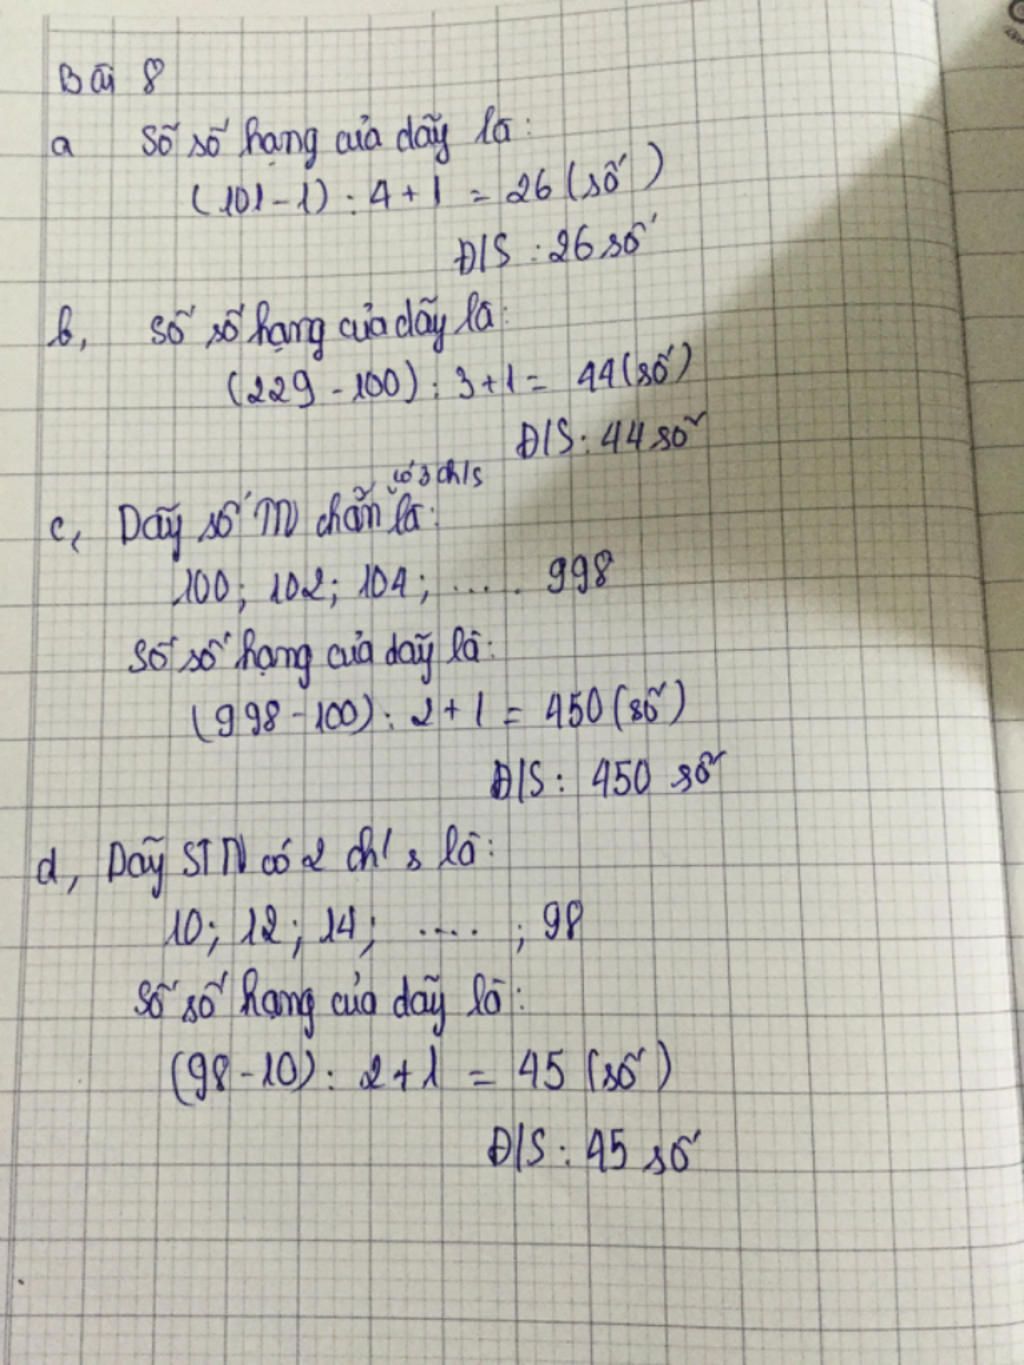 Bài 8
a Số số hạng của dãy là:
(101-1) : 4 + 1 = 26 (số)
Đ/S : 26 số
b, Số số hạng của dãy là:
(229 - 100) : 3 + 1 = 44 (số)
Đ/S : 44 số
có 3 ch/s
c, Dãy số TN chẵn là:
100; 102; 104; ..... 998
Số số hạng của dãy là:
(998 - 100) : 2 + 1 = 450 (số)
Đ/S : 450 số
d, Dãy STN có 2 ch/s là:
10; 12; 14; .... ; 98
Số số hạng của dãy là:
(98 - 10) : 2 + 1 = 45 (số)
Đ/S : 45 số